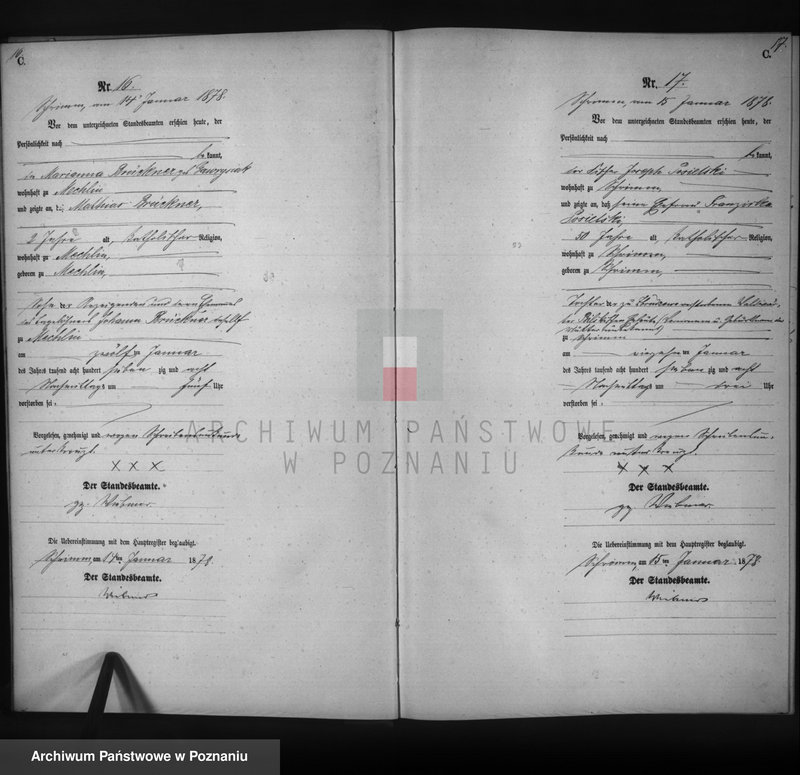 16
C.
Nr. 16.
Schrimm, am 14 Januar 1878.
Vor dem unterzeichneten Standesbeamten erschien heute, der
Persönlichkeit nach
be kannt,
die Marianna Brückner
wohnhaft zu Mechlin
und zeigte an, Mathias Brückner,
2 Jahre alt, katholischer Religion,
wohnhaft zu Mechlin,
geboren zu Mechlin,
Sohn der Anzeigenden und
Johann Brückner
zu Mechlin
am zwölf ten Januar
des Jahres tausend acht hundert sieben zig und acht
Nachmittags um fünf Uhr
verstorben sei
Vorgelesen, genehmigt und wegen Schreibensunkunde
unterkreuzt.
X X X
Der Standesbeamte.
gz. Wibmer
Die Uebereinstimmung mit dem Hauptregister beglaubigt.
Schrimm, am 14ten Januar 1878.
Der Standesbeamte.
17.
C.
Nr. 17.
Schrimm, am 15 Januar 1878.
Vor dem unterzeichneten Standesbeamten erschien heute, der
Persönlichkeit nach
be kannt,
der Joseph
wohnhaft zu Schrimm
und zeigte an, daß seine Ehefrau Franziska
30 Jahre alt, katholischer Religion,
wohnhaft zu Schrimm,
geboren zu Schrimm,
Tochter der zu verstorbenen
zu Schrimm
am vierzehn ten Januar
des Jahres tausend acht hundert sieben zig und acht
Nachmittags um drei Uhr
verstorben sei
Vorgelesen, genehmigt und wegen Schreibensun-
kunde unterkreuzt.
X X X
Der Standesbeamte.
gz. Wibmer
Die Uebereinstimmung mit dem Hauptregister beglaubigt.
Schrimm, am 15ten Januar 1878.
Der Standesbeamte.
ARCHIWUM PAŃSTWOWE
W POZNANIU
Archiwum Państwowe w Poznaniu